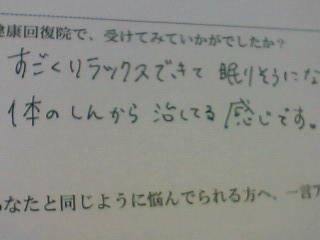 健康回復院で、受けてみていかがでしたか?
すごくリラックスできて 眠りそうにな
体のしんから 治してる 感じです。
なたと同じように悩んでられる方へ、一言ア